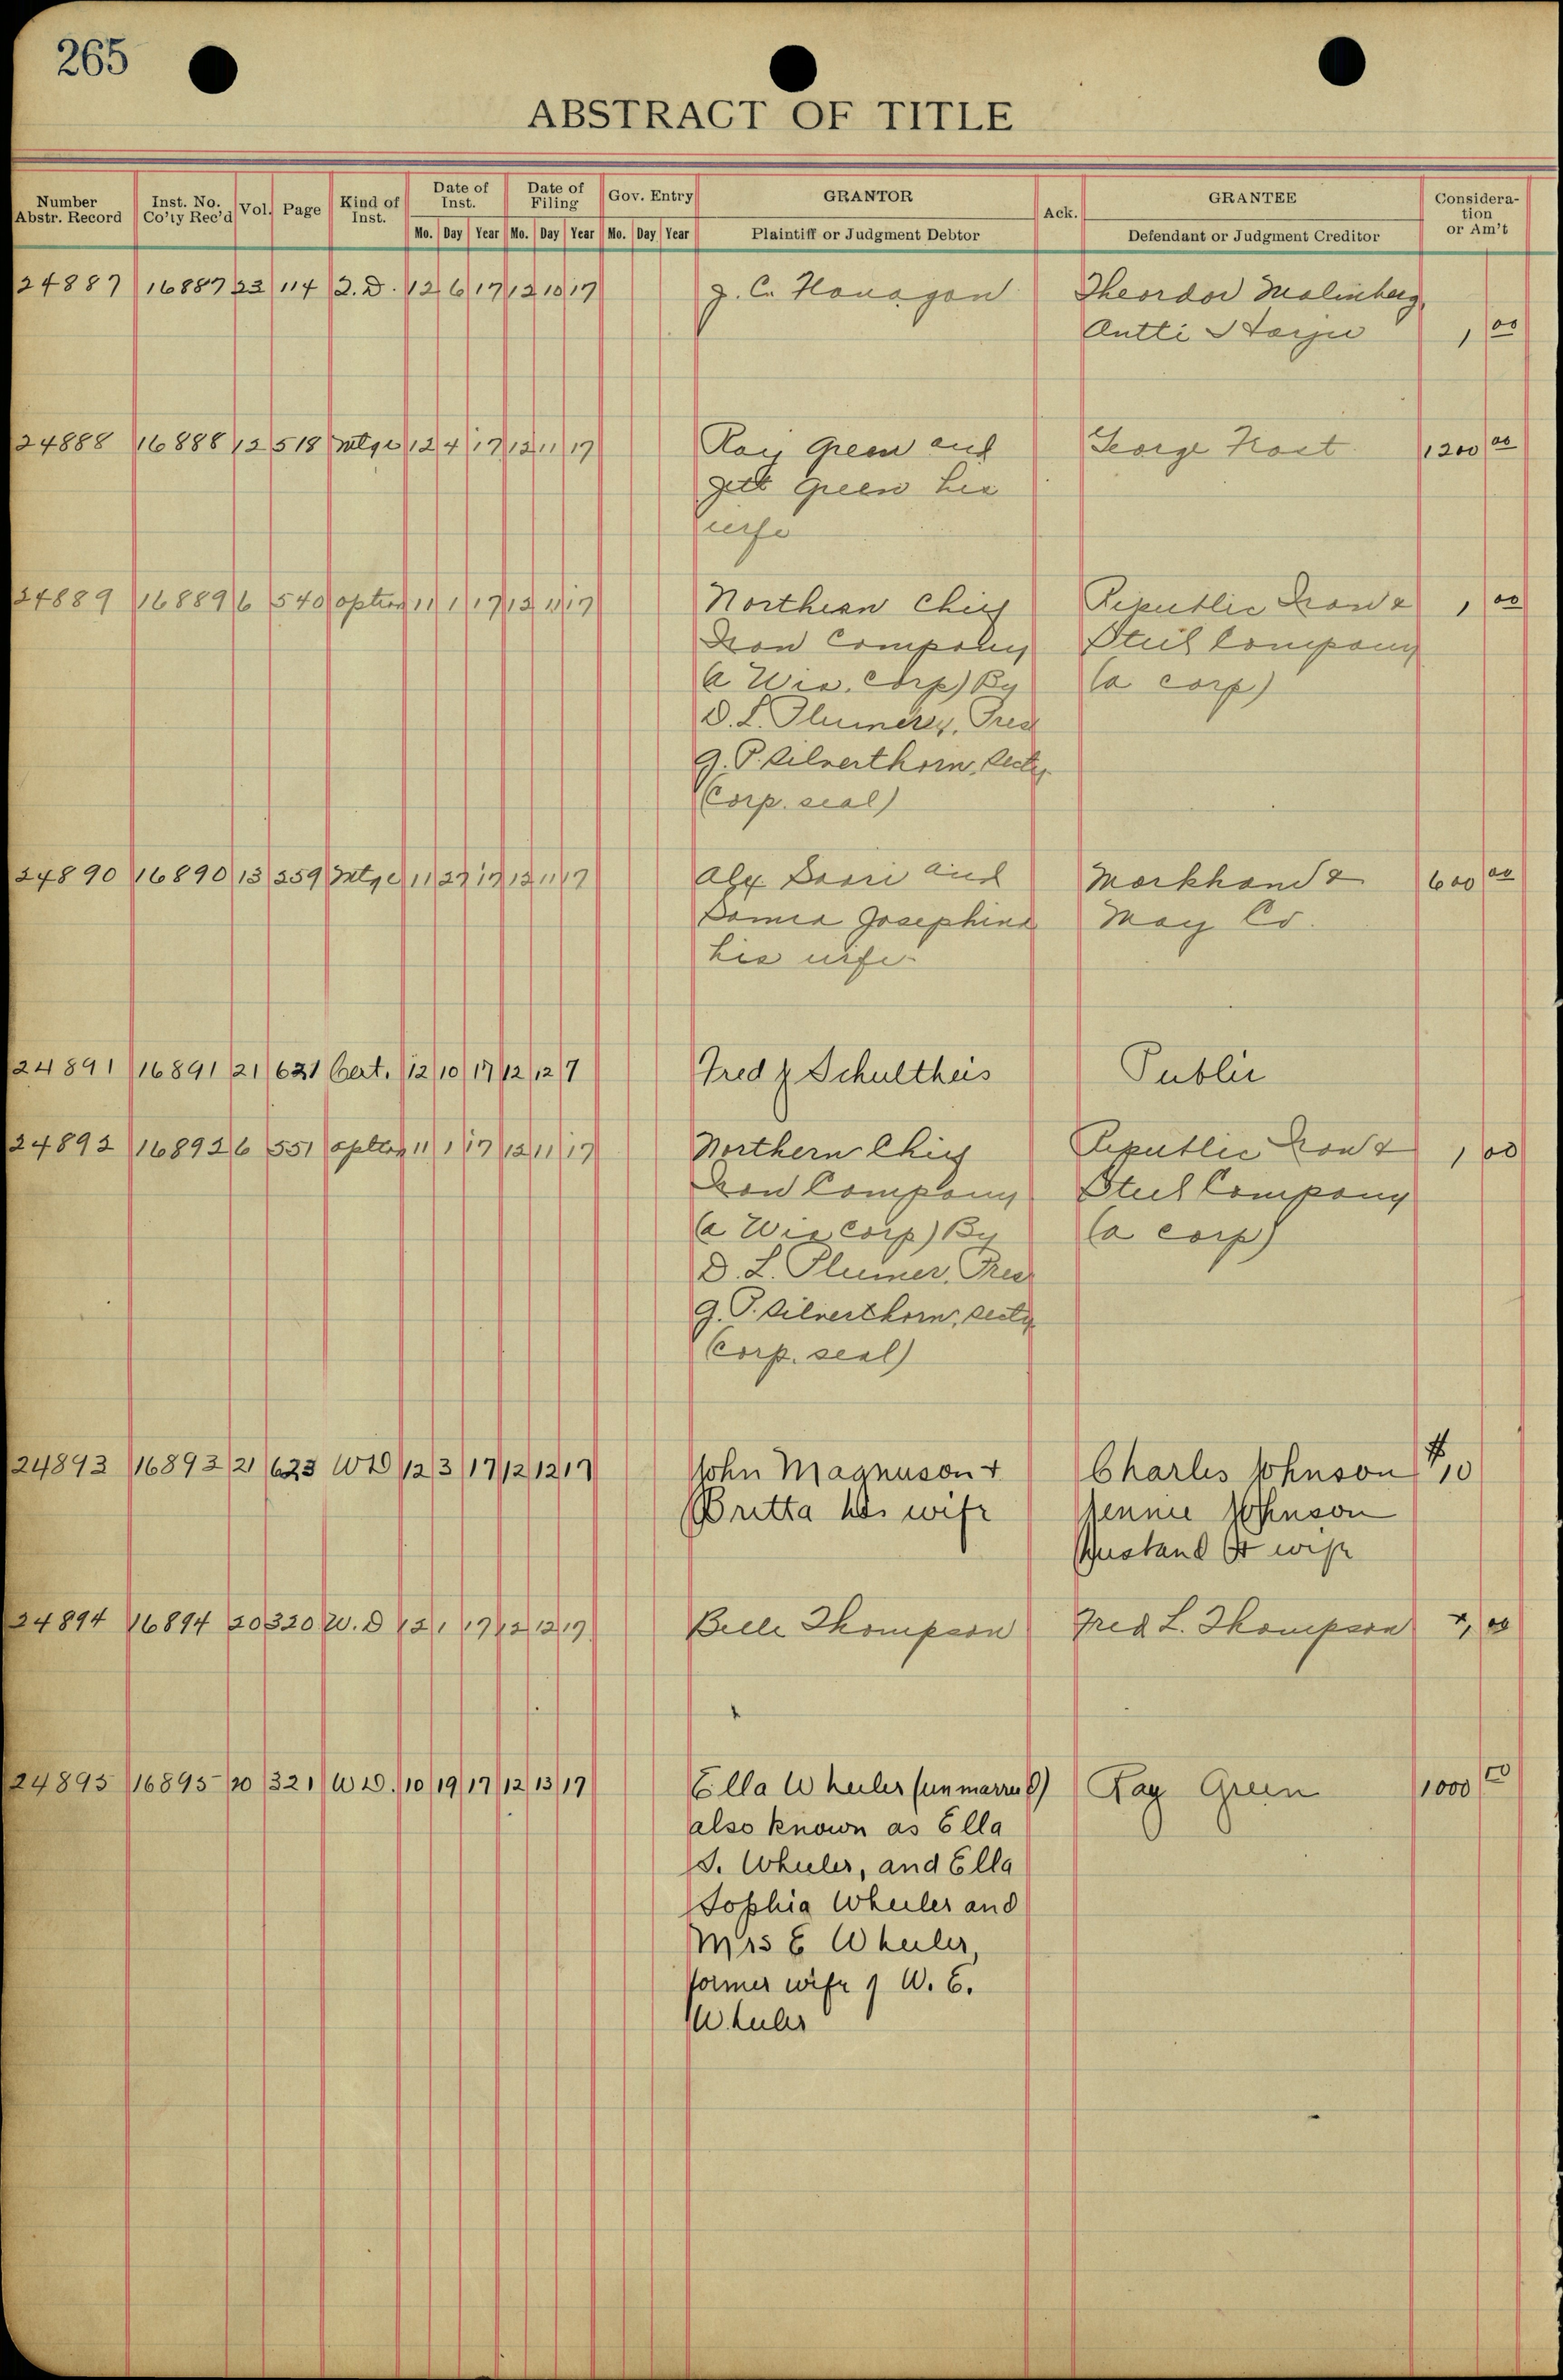 265
ABSTRACT OF TITLE
Number Abstr. Record | Inst. No. Co'ty Rec'd | Vol. | Page | Kind of Inst. | Date of Inst. | Date of Filing | Gov. Entry | GRANTOR | Ack. | GRANTEE | Consideration or Am't
Mo. Day Year Mo. Day Year Mo. Day Year Plaintiff or Judgment Debtor Defendant or Judgment Creditor
24887 16887 23 114 2. D. 12 6 17 12 10 17 J. C. Flanagan Theordor Malmberg,
Antti Harju 1 00
24888 16888 12 518 Mtge 12 4 17 12 11 17 Ray Green and George Frost 1200 00
Green his
wife
24889 16889 6 540 option 11 1 17 12 11 17 Northern Chief Republic Iron & 1 00
Iron Company Steel Company
(a Wis. Corp) By (a corp)
D. L. Plumer, Pres
G. P. Silverthorn, Secty
(Corp. seal)
24890 16890 13 259 Mtge 11 27 17 12 11 17 Alex and Markham & 600 00
Josephina May Co.
his wife
24891 16891 21 621 Cert. 12 10 17 12 12 7 Fred J Schultheis Public
24892 16892 6 551 option 11 1 17 12 11 17 Northern Chief Republic Iron & 1 00
Iron Company Steel Company
(a Wis Corp) By (a corp)
D. L. Plumer, Pres
G. P. Silverthorn, Secty
(Corp. seal)
24893 16893 21 623 WD 12 3 17 12 12 17 John Magnuson + Charles Johnson $10
Britta his wife Jennie Johnson
Husband & wife
24894 16894 20 320 W. D 12 1 17 12 12 17 Belle Thompson Fred L. Thompson 00
24895 16895 20 321 WD. 10 19 17 12 13 17 Ella Wheeler (unmarried) Ray Green 1000 00
also known as Ella
S. Wheeler, and Ella
Sophia Wheeler and
Mrs E Wheeler,
former wife of W. E.
Wheeler